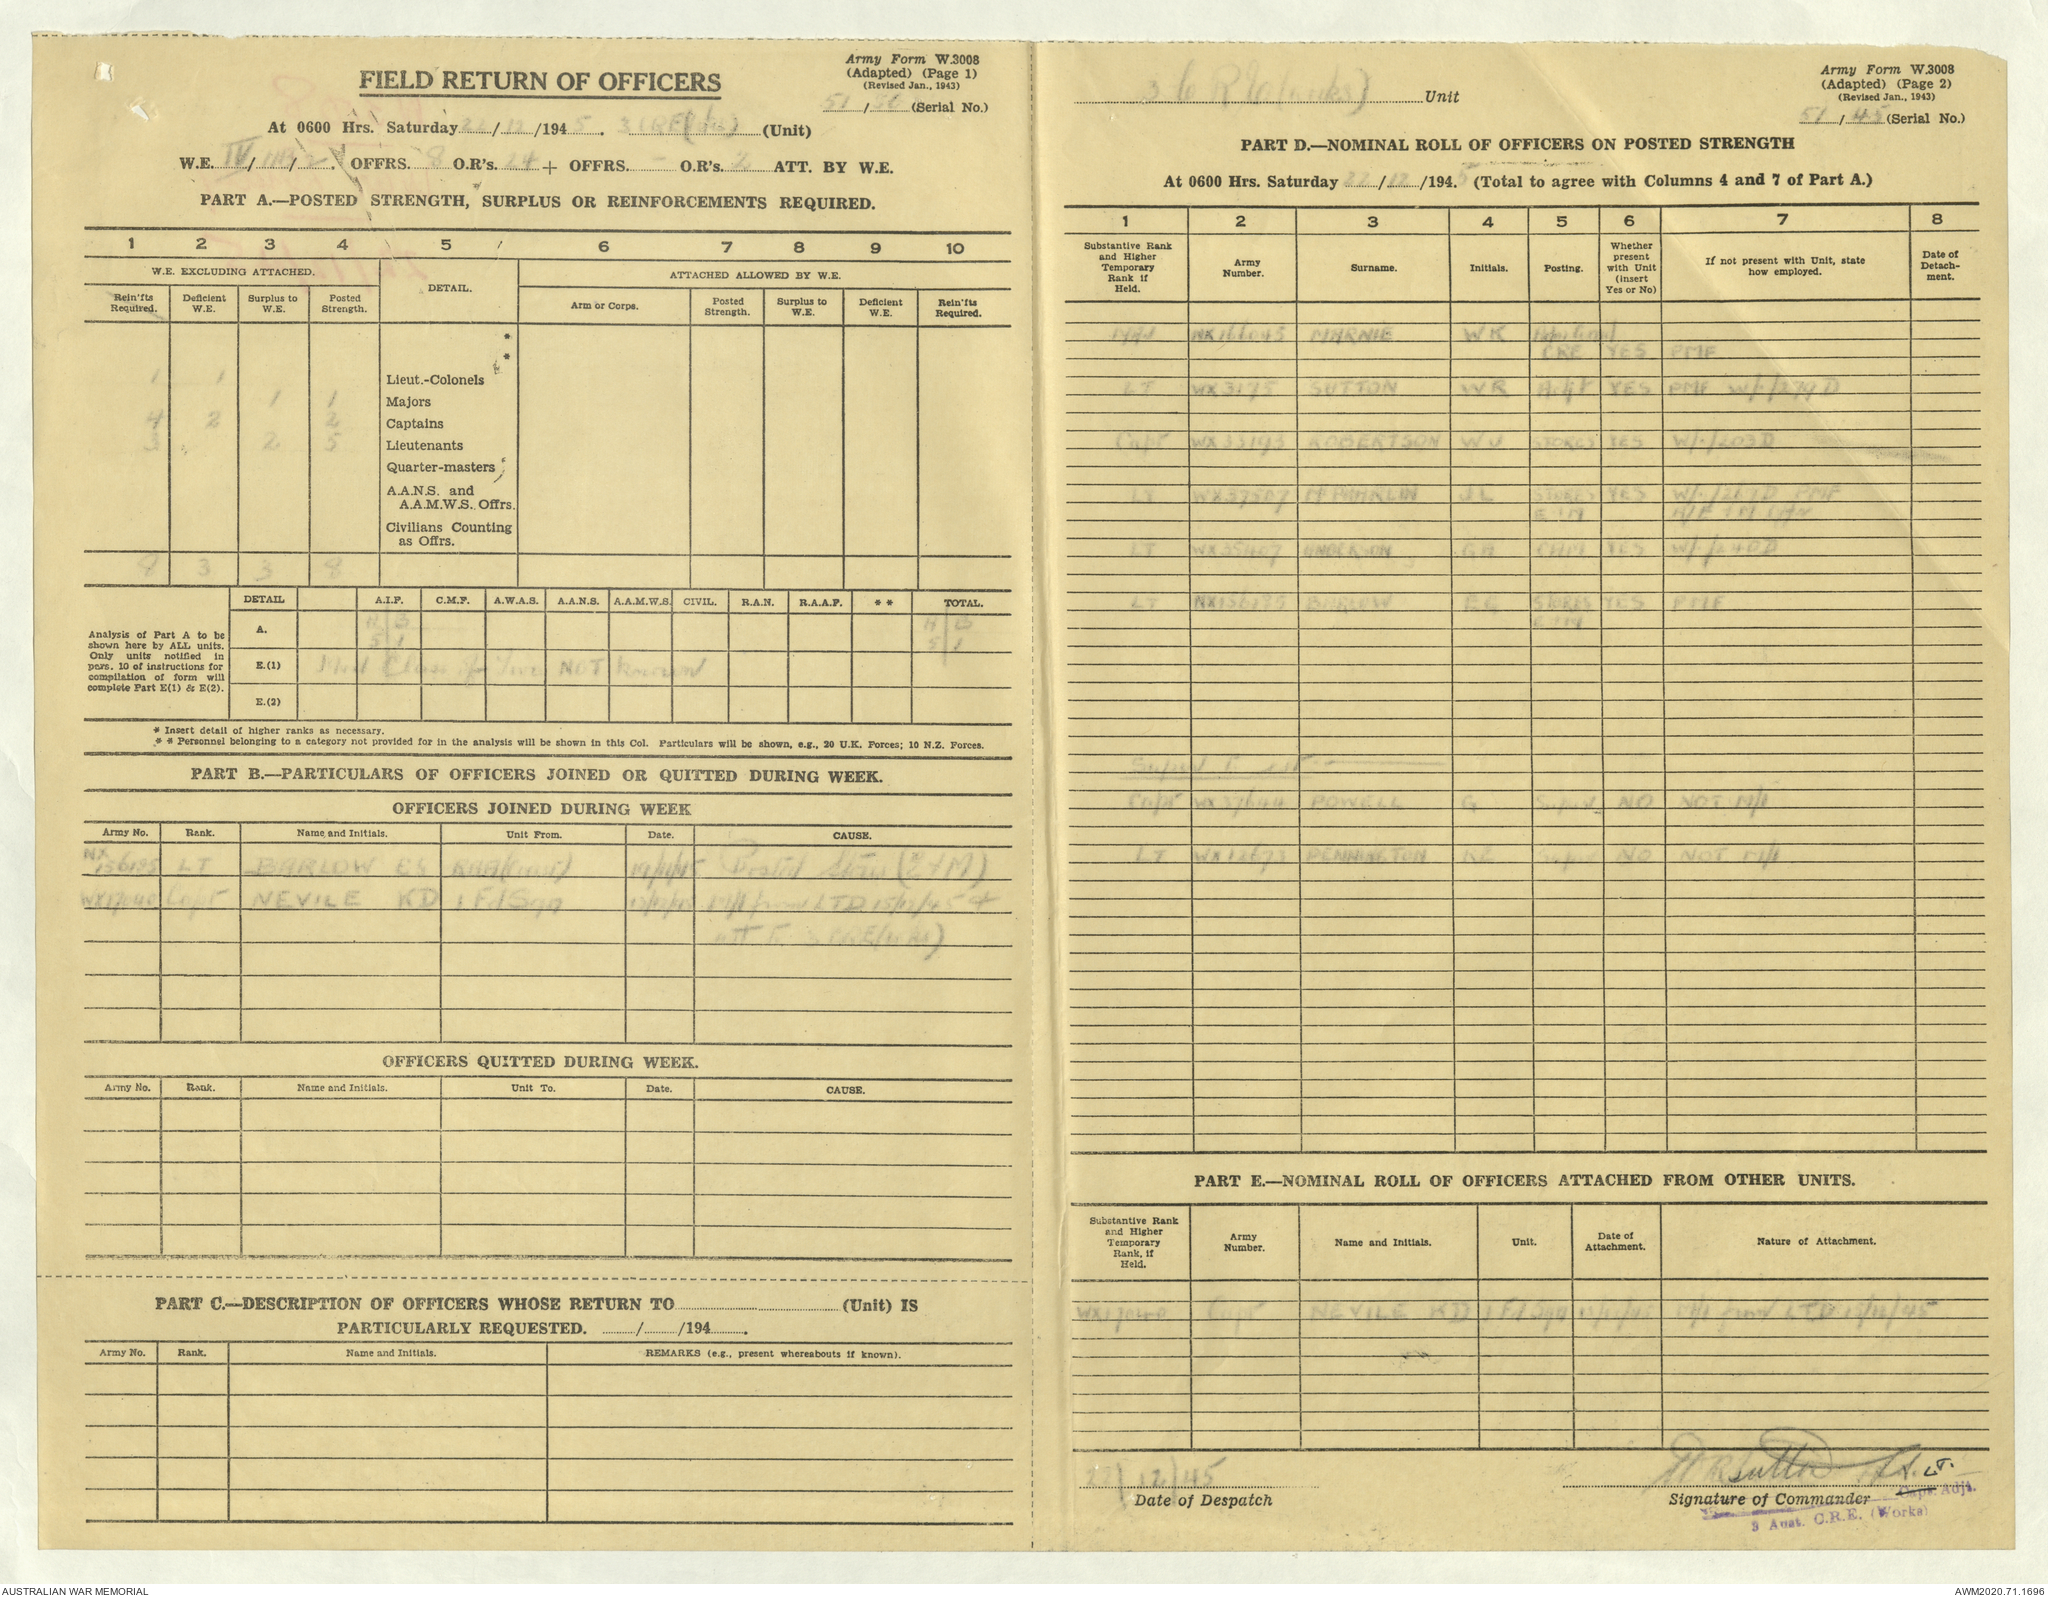 Army Form W.3008
(Adapted) (Page 1)
(Revised Jan., 1943)
FIELD RETURN OF OFFICERS
51/ (Serial No.)
At 0600 Hrs. Saturday 22/12/1945. 3 CRE (Wks) (Unit)
W.E. IV/ / 2 OFFRS. 8 O.R's. 24 + OFFRS. - O.R's. 2 ATT. BY W.E.
PART A.—POSTED STRENGTH, SURPLUS OR REINFORCEMENTS REQUIRED.
1 2 3 4 5 6 7 8 9 10
W.E. EXCLUDING ATTACHED. DETAIL. ATTACHED ALLOWED BY W.E.
Rein'fts Required. Deficient W.E. Surplus to W.E. Posted Strength. Arm or Corps. Posted Strength. Surplus to W.E. Deficient W.E. Rein'fts Required.
*
*
1 1 Lieut.-Colonels
1 1 Majors
4 2 2 Captains
3 2 5 Lieutenants
Quarter-masters
A.A.N.S. and A.A.M.W.S. Offrs.
Civilians Counting as Offrs.
8 3 3 8
DETAIL A.I.F. C.M.F. A.W.A.S. A.A.N.S. A.A.M.W.S. CIVIL. R.A.N. R.A.A.F. ** TOTAL.
Analysis of Part A to be shown here by ALL units. Only units notified in pars. 10 of instructions for compilation of form will complete Part E(1) & E(2).
A. A B A B
5 1 5 1
E.(1) Med Class for Two NOT Known
E.(2)
* Insert detail of higher ranks as necessary.
** Personnel belonging to a category not provided for in the analysis will be shown in this Col. Particulars will be shown, e.g., 20 U.K. Forces; 10 N.Z. Forces.
PART B.—PARTICULARS OF OFFICERS JOINED OR QUITTED DURING WEEK.
OFFICERS JOINED DURING WEEK
Army No. Rank. Name and Initials. Unit From. Date. CAUSE.
NX156195 LT BARLOW ES Posted Stores (E+M)
WX17040 Capt NEVILE KD 1 Fd Sqn M/I from LTD 15/12/45 +
att to 3 CRE (Wks)
OFFICERS QUITTED DURING WEEK.
Army No. Rank. Name and Initials. Unit To. Date. CAUSE.
PART C.—DESCRIPTION OF OFFICERS WHOSE RETURN TO (Unit) IS
PARTICULARLY REQUESTED. / /194 .
Army No. Rank. Name and Initials. REMARKS (e.g., present whereabouts if known).
Army Form W.3008
(Adapted) (Page 2)
(Revised Jan., 1943)
3 C R E (Works) Unit
51/45 (Serial No.)
PART D.—NOMINAL ROLL OF OFFICERS ON POSTED STRENGTH
At 0600 Hrs. Saturday 22/12/1945 (Total to agree with Columns 4 and 7 of Part A.)
1 2 3 4 5 6 7 8
Substantive Rank and Higher Temporary Rank if Held. Army Number. Surname. Initials. Posting. Whether present with Unit (insert Yes or No) If not present with Unit, state how employed. Date of Detachment.
MAJ NX166045 MARNIE WK
CRE YES PMF
LT WX3175 SUTTON WR Adjt YES PMF W/E/279D
Capt WX33193 ROBERTSON WJ STORES YES W/E/203D
LT WX37507 JL STORES YES PMF
E+M
LT WX35407 ANDERSON GH YES W/E/240D
LT NX156195 BARLOW ES STORES YES PMF
E+M
Capt WX37644 POWELL G Supns NO NOT M/I
LT WX12673 PENNINGTON KE Supns NO NOT M/I
PART E.—NOMINAL ROLL OF OFFICERS ATTACHED FROM OTHER UNITS.
Substantive Rank and Higher Temporary Rank, if Held. Army Number. Name and Initials. Unit. Date of Attachment. Nature of Attachment.
WX17040 Capt NEVILE KD 1 Fd Sqn M/I from LTD 15/12/45
22/12/45
Date of Despatch
WR Sutton Lt.
Signature of Commander Capt. Adjt.
3 Aust. C.R.E. (Works)
AUSTRALIAN WAR MEMORIAL
AWM2020.71.1696